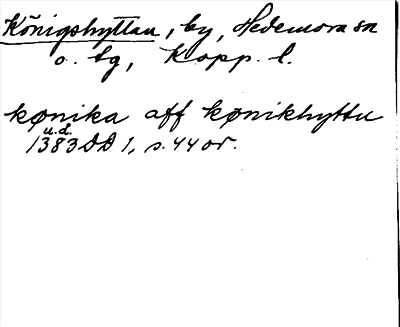 Königshyttan, by, Hedemora sn
o. bg, Kopp. l.
kønika aff kønikhyttu
u.d.
1383 DD 1, s. 44 or.